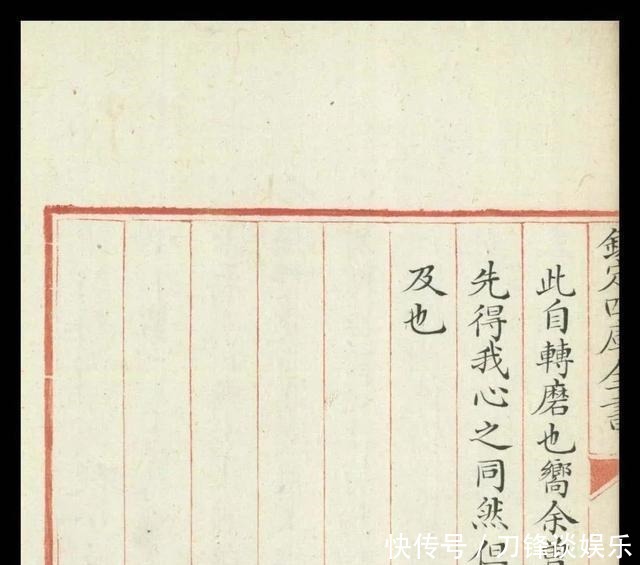 欽定四庫全書
此自轉磨也嚮余曾
先得我心之同然但
及也
快传号/刀锋谈娱乐